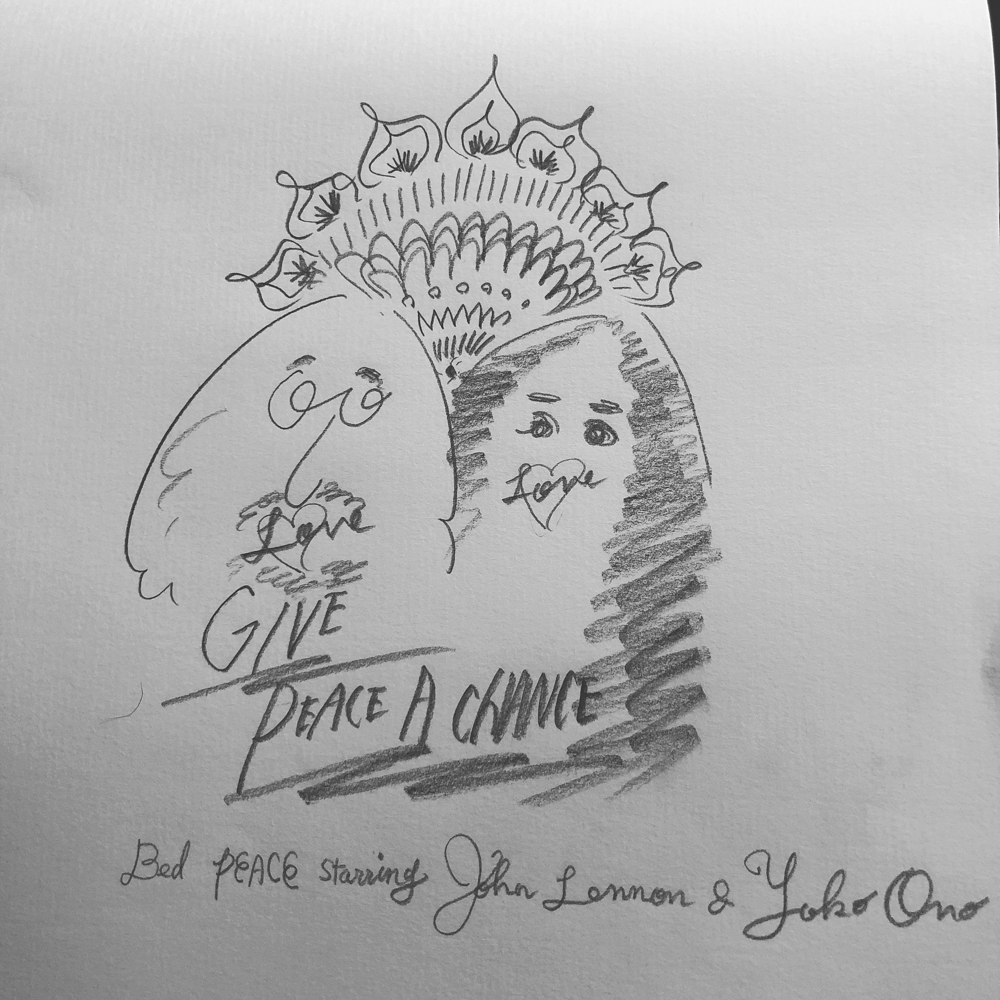 Love
Love
GIVE
PEACE A CHANCE
Bed PEACE starring John Lennon & Yoko Ono